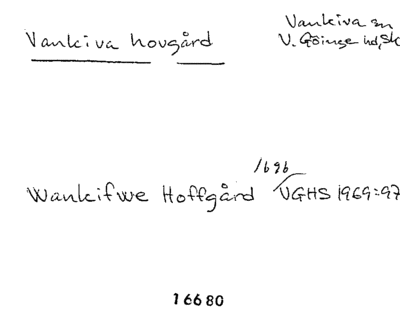 Vankiva hovgård
Vankiva sn
V. Göinge hd, Sk
1696
Wankifwe Hoffgård VGHS 1969:97
16680